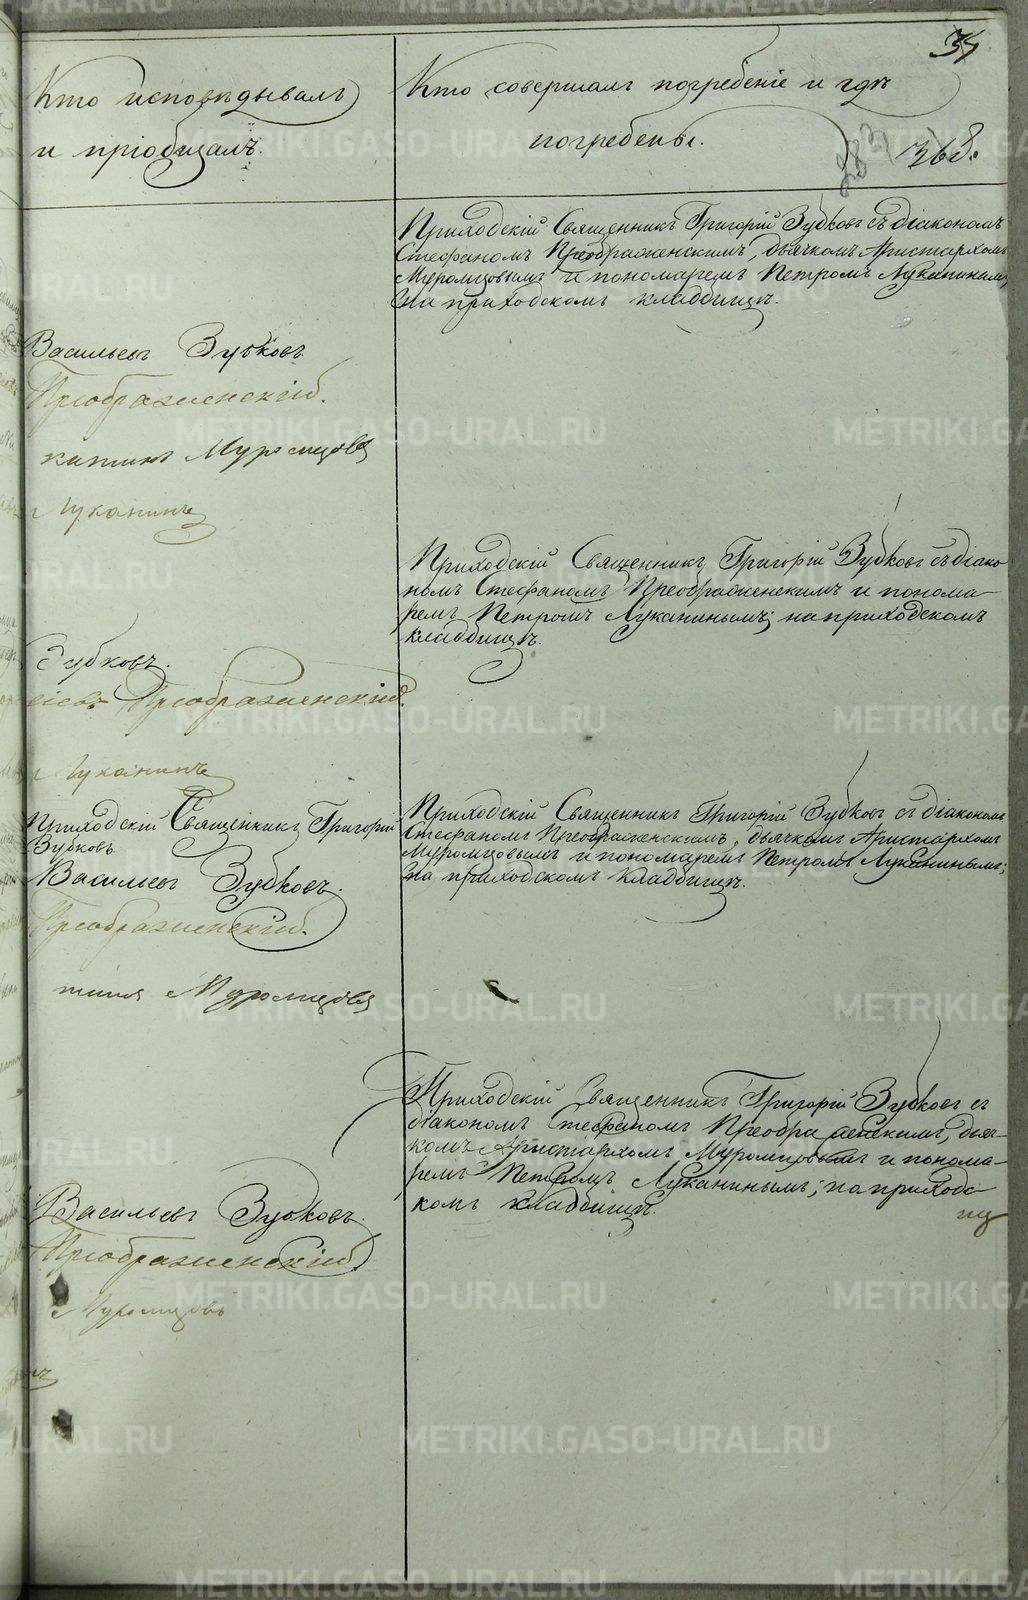 34
Кто исповѣдывалъ
и пріобщалъ.
Кто совершалъ погребеніе и гдѣ
погребены.
283
368.
Приходскій Священникъ Григорій Зубковъ съ діакономъ
Стефаномъ Преображенскимъ, дьячкомъ Аристархомъ
Муромцовымъ и пономаремъ Петромъ Луканинымъ;
на приходскомъ кладбищѣ.
Васильевъ Зубковъ
Преображенскій.
Муромцовъ
Луканинъ
Приходскій Священникъ Григорій Зубковъ съ діако-
номъ Стефаномъ Преображенскимъ и понома-
ремъ Петромъ Луканинымъ; на приходскомъ
кладбищѣ.
Зубковъ.
Преображенскій.
Луканинъ
Приходскій Священникъ Григорій
Зубковъ
Васильевъ Зубковъ.
Преображенскій.
Муромцовъ
Приходскій Священникъ Григорій Зубковъ съ діакономъ
Стефаномъ Преображенскимъ, дьячкомъ Аристархомъ
Муромцовымъ и пономаремъ Петромъ Луканинымъ;
на приходскомъ кладбищѣ.
Приходскій Священникъ Григорій Зубковъ съ
діакономъ Стефаномъ Преображенскимъ, дьяч-
комъ Аристархомъ Муромцовымъ и понома-
ремъ Петромъ Луканинымъ; на приходс-
комъ кладбищѣ.
Васильевъ Зубковъ.
Преображенскій
Муромцовъ
METRIKI.GASO-URAL.RU